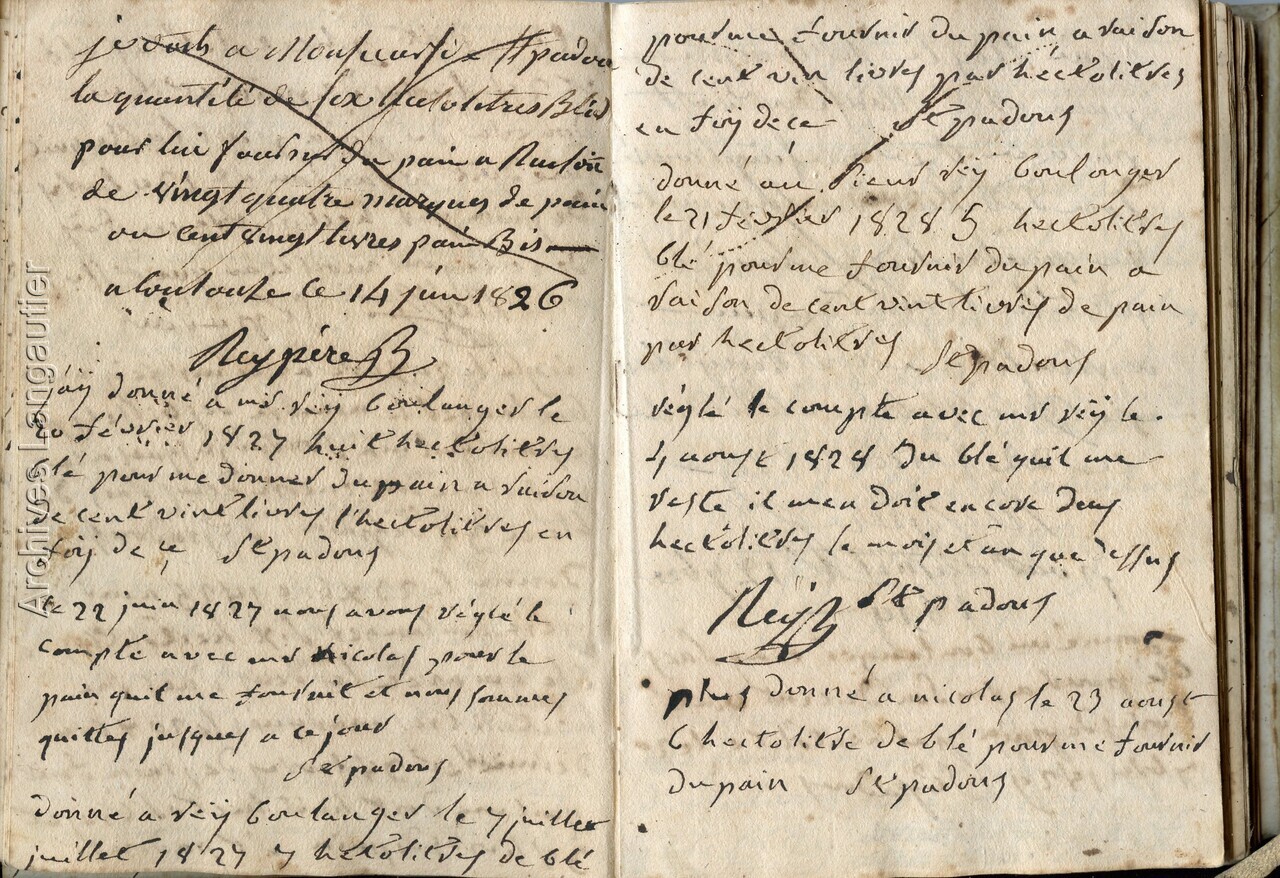 je dois a Monsieur St padou
la quantité de six hectolitres Bled
pour lui fournir du pain a Raison
de vingt quatre marques de pain
ou cent vingt livres pain Bis
a Toulouse ce 14 juin 1826
Rey père
j'ay donné a mr reij boulanger le
20 février 1827 huit hectolitres
blé pour me donner du pain a raison
de cent vint livres l'hectolitres en
foij de ce St padous
le 22 juin 1827 nous avons réglé le
compte avec mr Nicolas pour le
pain quil me fournit et nous sommes
quittes jusques a ce jour
St padous
donné a reij boulanger le 7 juillet
juillet 1827 7 hectolitres de blé
pour me fournir du pain a raison
de cent vin livres par hectolitres
en foij de ce St padous
donné au sieur reij boulanger
le 21 février 1828 5 hectolitres
blé pour me fournir du pain a
raison de cent vint livres de pain
par hectolitres St padous
réglé le compte avec mr reij le
4 aoust 1828 du blé quil me
reste il men doit encore deus
hectolitres le mois et an que dessus
Reij St padous
plus donné a nicolas le 23 aoust
6 hectolitre de blé pour me fournir
du pain St padous
Archives Langautier